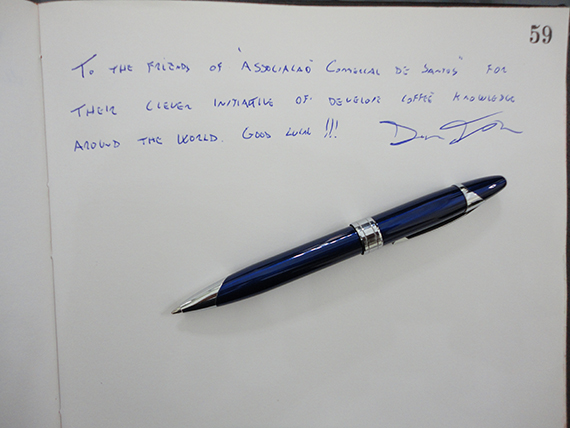 59
To the friends of "Associacaõ Comercial de Santos" for
their clever initiative of develop coffe knowledge
around the world. Good luck!!!